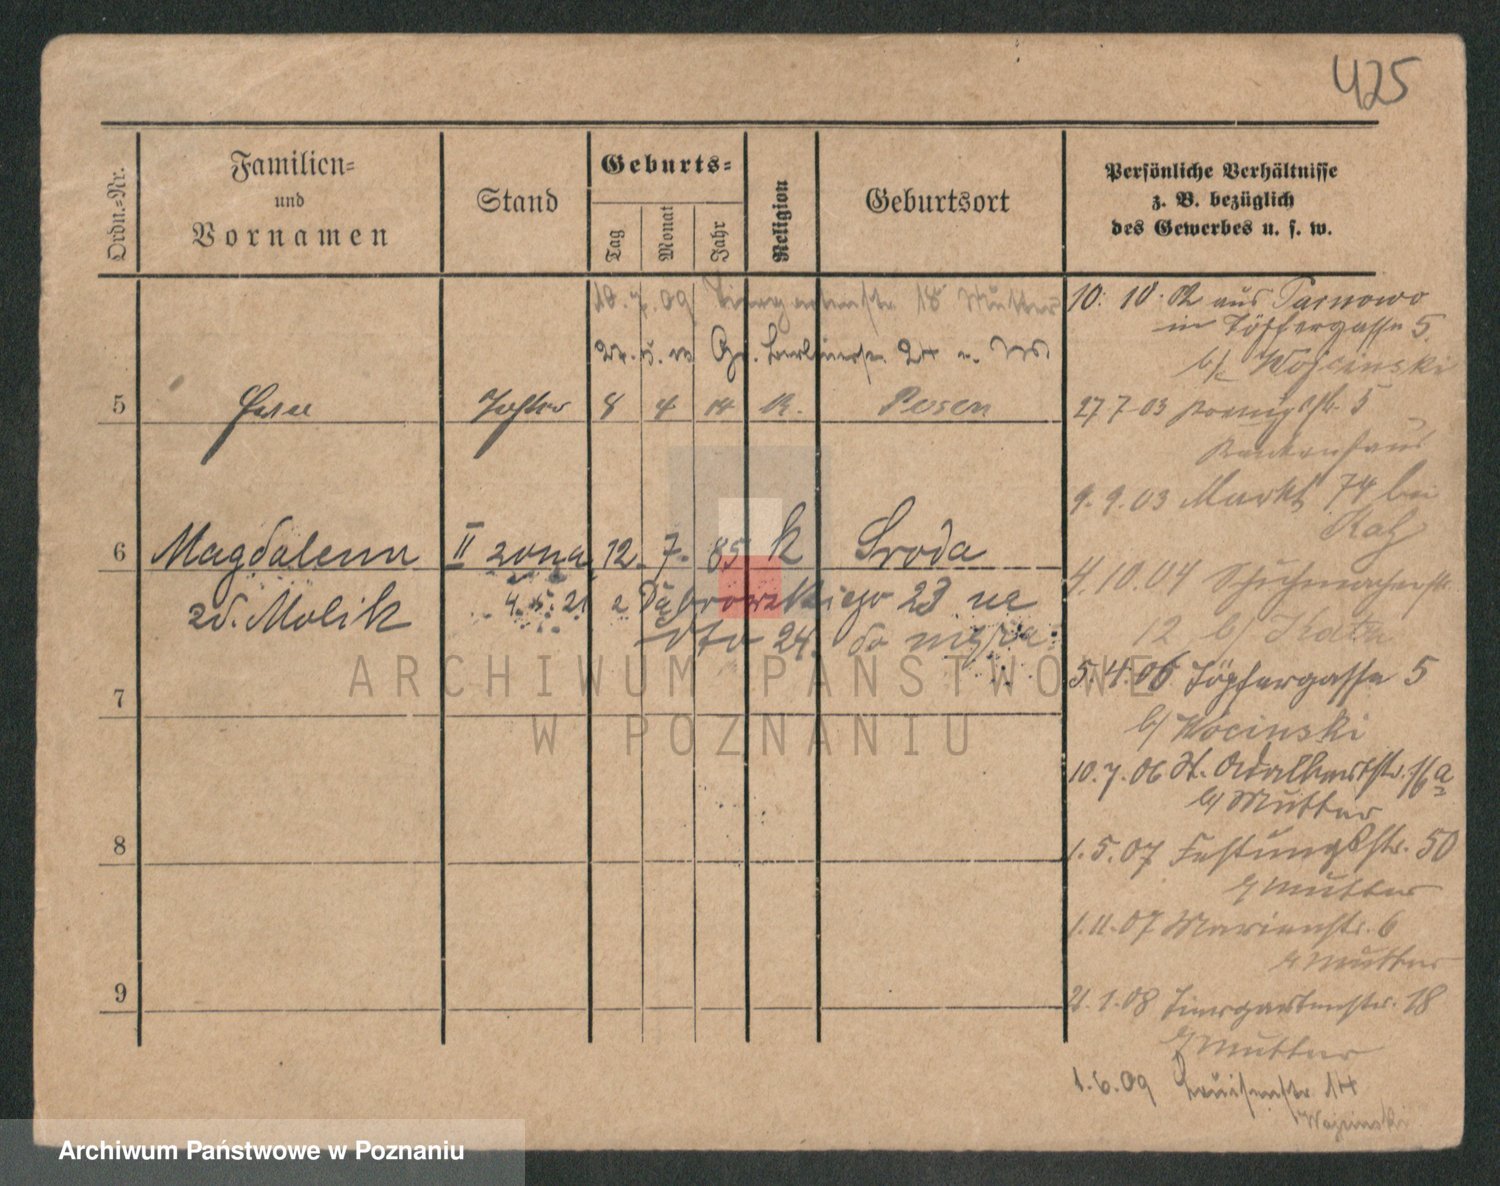 425
Ordn.-Nr.
Familien-
und
Vornamen
Stand
Geburts-
Tag
Monat
Jahr
Religion
Geburtsort
Persönliche Verhältnisse
z. B. bezüglich
des Gewerbes u. s. w.
18. 7. 09 Tiergartenstr 18 Mutter
24
5
Tochter 8 4 K. Posen
6 Magdalena II żona 12. 7. 85 K Środa
zd. Molik
4. 5. 21 z Dąbrowskiego 23 na
dto 24. do męża
7
8
9
10. 10. aus Tarnowo
in Töpfergasse 5.
b/ Wojcinski
27 7 03 5
Krankenhaus
9. 9. 03 Markt 74 bei
Katz
4. 10. 04 Schuhmacherstr
12 b/
5. 4. 06 Töpfergasse 5
b/ Wocinski
10. 7. 06 St. Adalbertstr. 16a
b/ Mutter
1. 5. 07 Festungsstr. 50
Mutter
1. 11. 07 Marienstr. 6
Mutter
21. 1. 08 Tiergartenstr. 18
Mutter
1. 6. 09 Louisenstr 14
Wojcinski
ARCHIWUM PAŃSTWOWE
W POZNANIU
Archiwum Państwowe w Poznaniu